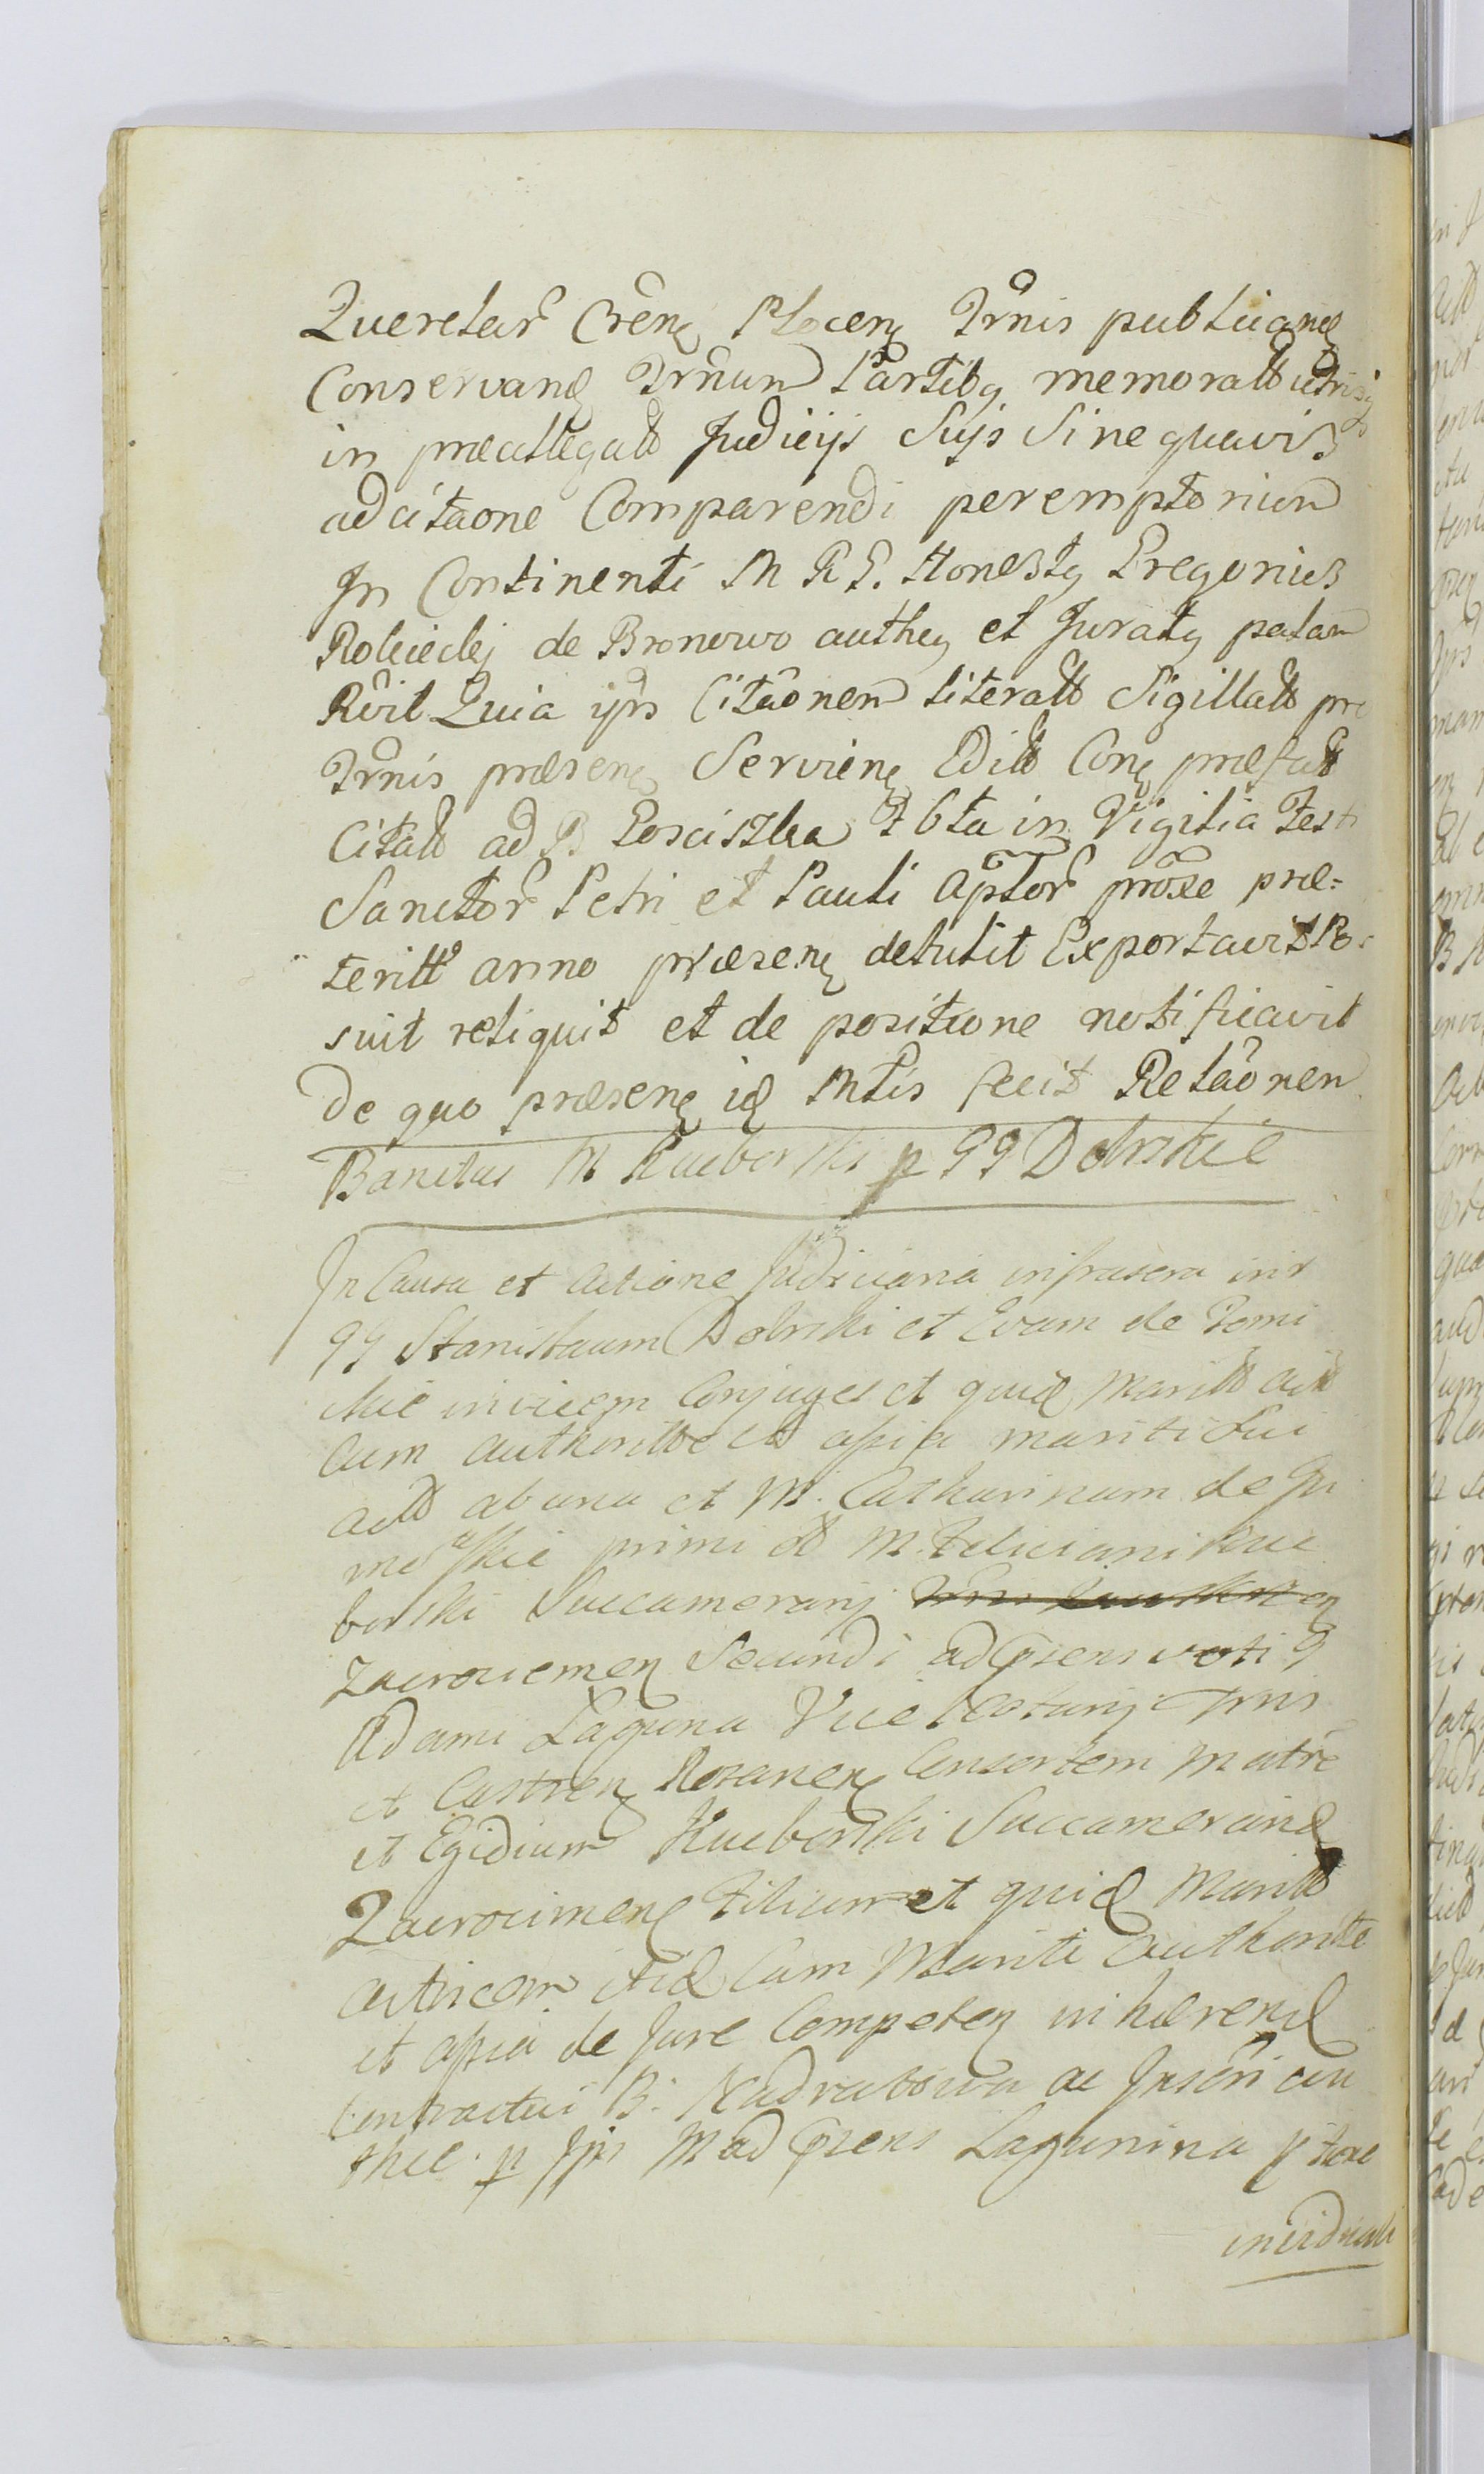 Querelar Cren Plocen Trnis publicand
Conservand Trnum Partibq memoratt utrisq
in præallegatt Judicijs Suis Sine quavis
adcitaone Comparendi peremptorium
In Continenti M R T. Honestq Gregorius
de Bronowo authen et Juratq palam
Rcil Quia ipse Citaonem literatt Sigillatt pro
Trnis præsen Servien Editt Con præfatt
Citatt ad B Posciszka Sbta in Vigilia Festi
Sanctor Petri et Pauli Aptor proxe præ=
teritt anno præsen detulit Exportavit Po=
suit reliquit et de positione notificavit
De quo præsen id Mtis fecit Relaonem
Banitus M Kucborski p GG Dobrskie
In Causa et Actione Judiciaria infrascra intr
GG Stanislaum Dobrski et Evam de
skie invicem Conjuges et quid Maritt
Cum authoritte et assia mariti Sui
actt ab una et M. Catharinam de
skie primi M. Feliciani Kuc
borski Succamerarij
Zacrocimen Secundi ad præsens voti G
Adami Laguna Vice Notarij Trris
et Castren Rozanen Consortem Matre
et Egidium Kucborski Succamerarid
Zacrocimen Filium et quid Maritt
actricem itid Cum Mariti Authoritte
et assia de Jure Competen inhærend
Contractui B. Nadratowa ac
thce p Ips M ad præsens Lagunina